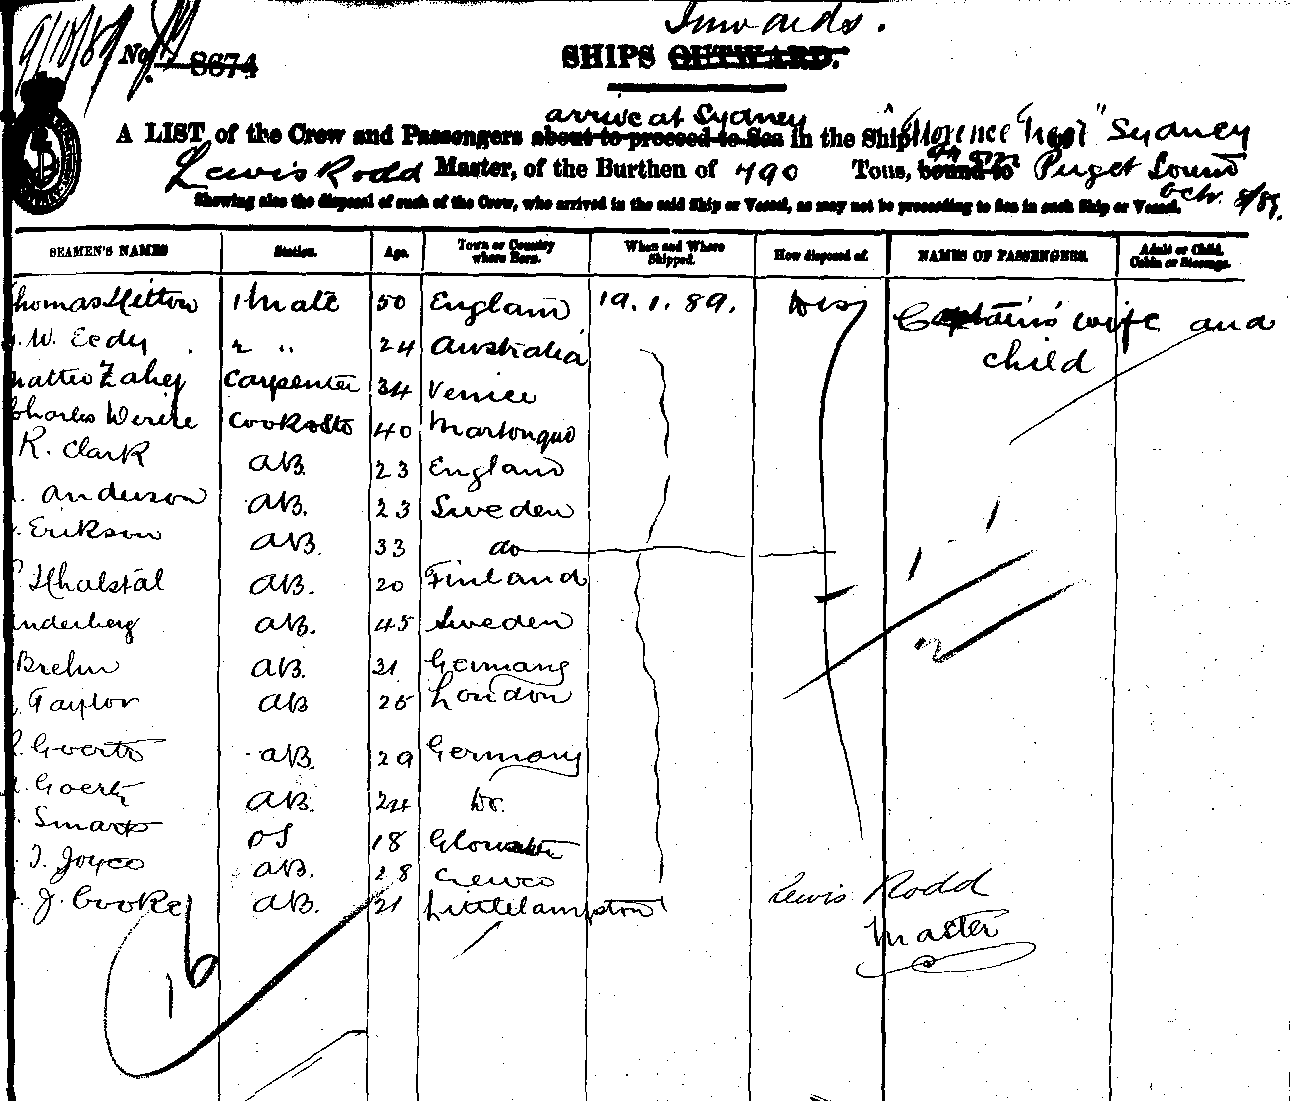 9/10/89 No. 8674
Inwards.
SHIPS OUTWARD.
arrive at Sydney
A LIST of the Crew and Passengers about to proceed to Sea in the Ship "Florence Treat" Sydney
Lewis Rodd Master, of the Burthen of 490 Tons, bound to from Puget Sound
Octr. 8/89.
Showing also the disposal of such of the Crew, who arrived in the said Ship or Vessel, as may not be proceeding to Sea in such Ship or Vessel.
SEAMEN'S NAMES Station. Age. Town or Country where Born. When and Where Shipped. How disposed of. NAMES OF PASSENGERS. Adult or Child, Cabin or Steerage.
Thomas Hitton 1 Mate 50 England 19.1.89. Dis Captain's wife and
W. Eedy 2 " 24 Australia child
Matteo Carpenter 34 Venice
Charles Cook & Std 40
R. Clark AB. 23 England
Anderson AB. 23 Sweden
Erikson AB. 33 do
AB. 20 Finland
AB. 45 Sweden
Brehm AB. 31 Germany
Taylor AB 25 London
AB. 29 Germany
Goertz AB. 24 Do.
Smart OS 18
T. Joyce AB. 28
J. Cooke AB. 21 Littlehampton
16
Lewis Rodd
Master